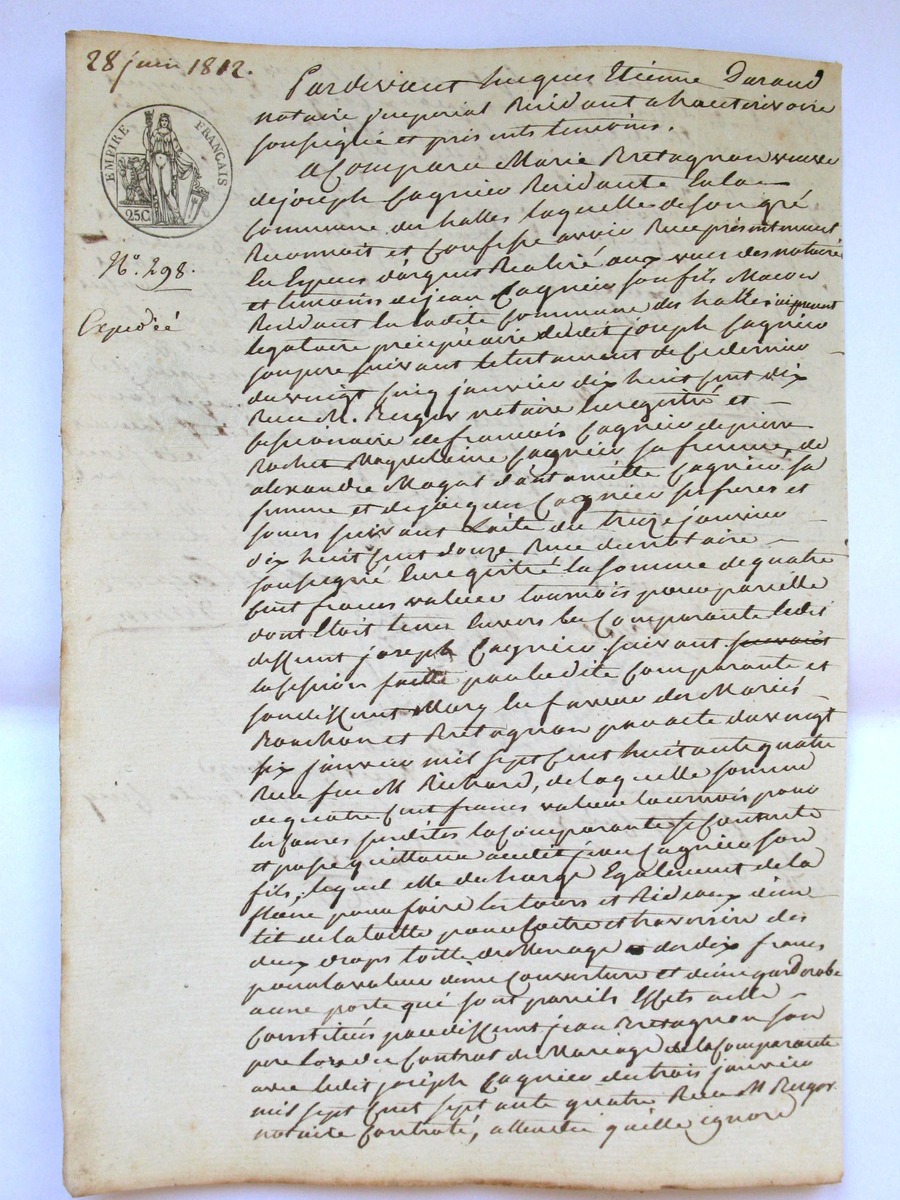 28 juin 1812.
EMPIRE FRANÇAIS
25C.
N°. 298.
Expediée
Pardevant Jacques Etienne Durand
notaire imperial Residant a hauterivoire
soussigné et presents temoins.
a Comparu Marie Bretagnon veuve
de joseph Cagnieu Residante en la
Commune des halles laquelle de son gré
Reconnoit et Confesse avoir Recu présentement
En Especes d'argent Realisé aux vues des notaire
et temoins de jean Cagnieu son fils Macon
Residant en ladite Commune des halles ici present
legataire précipuaire dudit joseph Cagnieu
son pere suivant le testament de ce dernier
du vingt cinq janvier dix huit cent dix
Recu M. Ruger notaire Enregistré et
cessionaire de francois Cagnieu de pierre
Rochet Magdelaine Cagnieu sa femme, de
alexandre Magat d'antoinette Cagnieu sa
femme et de jacques Cagnieu ses freres et
soeurs suivant l'acte du treize janvier
dix huit cent douze Recu du notaire
soussigné Enregistré la somme de quatre
cent francs valeur tournois pour pareille
dont Etoit tenu Envers la Comparante ledit
deffunt joseph Cagnieu suivant suivant
la cession faitte par ladite Comparante et
son deffunt Mary En faveur des Mariés
Bonchon et Bretagnon par acte du vingt
six janvier mil sept cent huitante quatre
Recu feu M Richard, de laquelle somme
de quatre cent francs valeur tournois pour
les causes susdites la Comparante se Contente
et passe quittance audit jean Cagnieu son
fils, lequel elle decharge Egalement de la
pour faire les tours et Rideaux d'un
lit de la toille pour Coitre et traversin des
deux draps toille de Menage de dix francs
pour la valeur d'une Couverture et d'une garderobe
a une porte qui sont pareils Effets a elle
Constitués par deffunt jean Bretagnon son
pere lors du Contrat de Mariage de la Comparante
avec ledit joseph Cagnieu du trois janvier
mil sept cent septante quatre Recu M Ruger
notaire Controlé, attendu qu'elle ignore